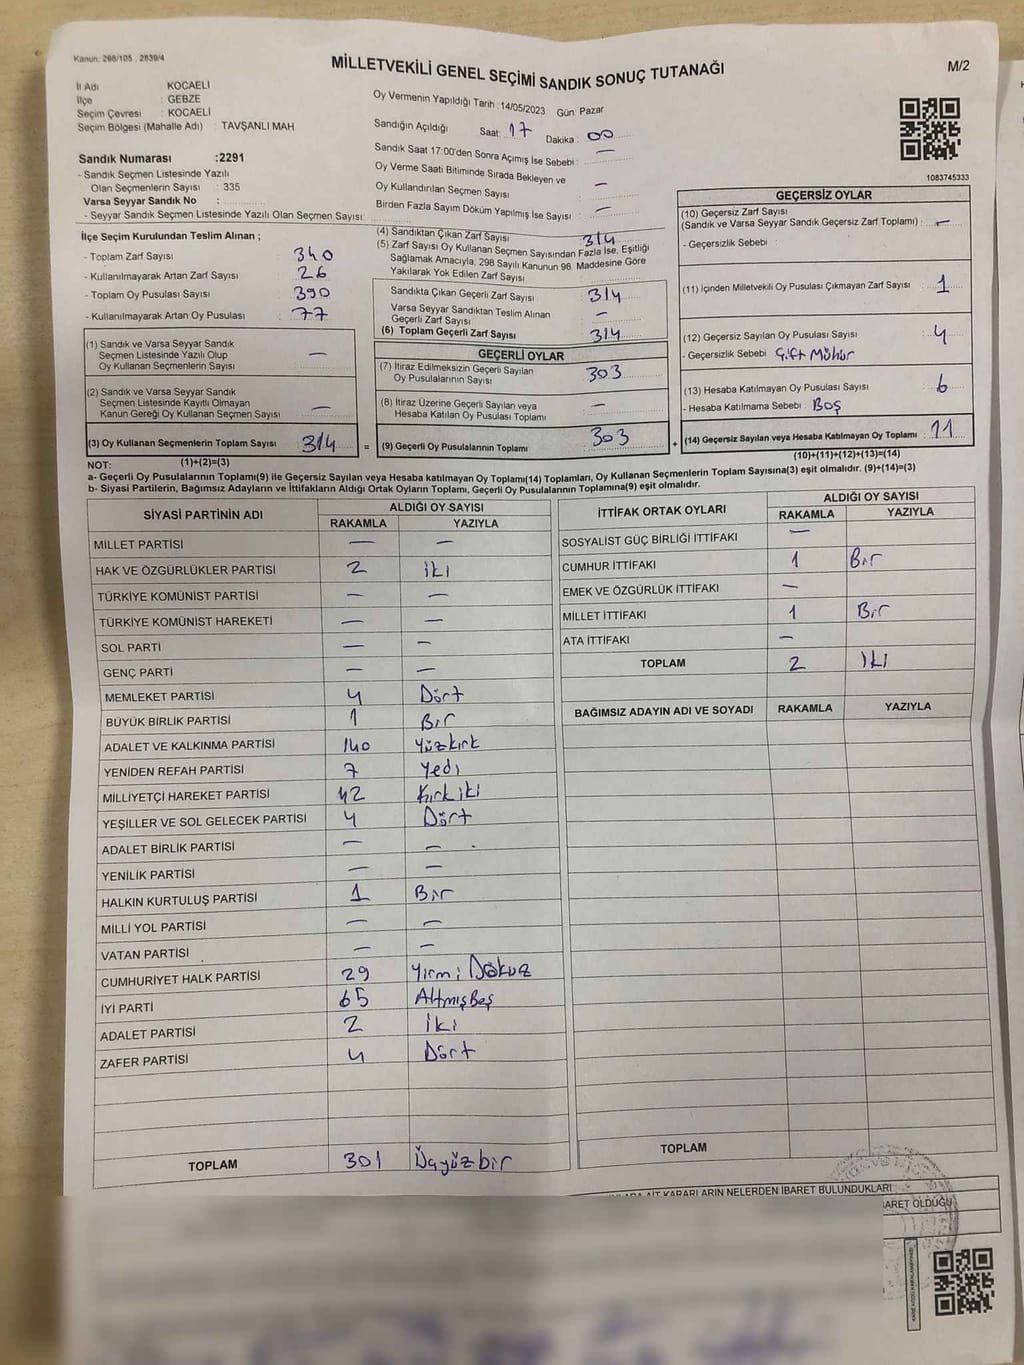 Kanun: 298/105 , 2839/4
MİLLETVEKİLİ GENEL SEÇİMİ SANDIK SONUÇ TUTANAĞI
M/2
İl Adı : KOCAELİ
İlçe : GEBZE
Seçim Çevresi : KOCAELİ
Seçim Bölgesi (Mahalle Adı) : TAVŞANLI MAH
Sandık Numarası :2291
- Sandık Seçmen Listesinde Yazılı
Olan Seçmenlerin Sayısı : 335
Varsa Seyyar Sandık No :
- Seyyar Sandık Seçmen Listesinde Yazılı Olan Seçmen Sayısı:
Oy Vermenin Yapıldığı Tarih :14/05/2023 Gün: Pazar
Sandığın Açıldığı Saat: 17 Dakika : 00
Sandık Saat 17:00'den Sonra Açımış İse Sebebi : —
Oy Verme Saati Bitiminde Sırada Bekleyen ve
Oy Kullandırılan Seçmen Sayısı : —
Birden Fazla Sayım Döküm Yapılmış İse Sayısı : —
1083745333
İlçe Seçim Kurulundan Teslim Alınan ;
- Toplam Zarf Sayısı : 340
- Kullanılmayarak Artan Zarf Sayısı : 26
- Toplam Oy Pusulası Sayısı : 390
- Kullanılmayarak Artan Oy Pusulası : 77
(1) Sandık ve Varsa Seyyar Sandık
Seçmen Listesinde Yazılı Olup
Oy Kullanan Seçmenlerin Sayısı : —
(2) Sandık ve Varsa Seyyar Sandık
Seçmen Listesinde Kayıtlı Olmayan
Kanun Gereği Oy Kullanan Seçmen Sayısı : —
(3) Oy Kullanan Seçmenlerin Toplam Sayısı : 314
(1)+(2)=(3)
(4) Sandıktan Çıkan Zarf Sayısı : 314
(5) Zarf Sayısı Oy Kullanan Seçmen Sayısından Fazla İse, Eşitliği
Sağlamak Amacıyla, 298 Sayılı Kanunun 98. Maddesine Göre
Yakılarak Yok Edilen Zarf Sayısı :
Sandıkta Çıkan Geçerli Zarf Sayısı : 314
Varsa Seyyar Sandıktan Teslim Alınan
Geçerli Zarf Sayısı : —
(6) Toplam Geçerli Zarf Sayısı : 314
GEÇERLİ OYLAR
(7) İtiraz Edilmeksizin Geçerli Sayılan
Oy Pusulalarının Sayısı : 303
(8) İtiraz Üzerine Geçerli Sayılan veya
Hesaba Katılan Oy Pusulası Toplamı : —
= (9) Geçerli Oy Pusulalarının Toplamı : 303
GEÇERSİZ OYLAR
(10) Geçersiz Zarf Sayısı
(Sandık ve Varsa Seyyar Sandık Geçersiz Zarf Toplamı) : —
- Geçersizlik Sebebi :
(11) İçinden Milletvekili Oy Pusulası Çıkmayan Zarf Sayısı : 1
(12) Geçersiz Sayılan Oy Pusulası Sayısı : 4
- Geçersizlik Sebebi : Çift Mühür
(13) Hesaba Katılmayan Oy Pusulası Sayısı : 6
- Hesaba Katılmama Sebebi : Boş
+ (14) Geçersiz Sayılan veya Hesaba Katılmayan Oy Toplamı : 11
(10)+(11)+(12)+(13)=(14)
NOT:
a- Geçerli Oy Pusulalarının Toplamı(9) ile Geçersiz Sayılan veya Hesaba katılmayan Oy Toplamı(14) Toplamları, Oy Kullanan Seçmenlerin Toplam Sayısına(3) eşit olmalıdır. (9)+(14)=(3)
b- Siyasi Partilerin, Bağımsız Adayların ve İttifakların Aldığı Ortak Oyların Toplamı, Geçerli Oy Pusulalarının Toplamına(9) eşit olmalıdır.
SİYASİ PARTİNİN ADI ALDIĞI OY SAYISI
RAKAMLA YAZIYLA
MİLLET PARTİSİ — —
HAK VE ÖZGÜRLÜKLER PARTİSİ 2 iki
TÜRKİYE KOMÜNİST PARTİSİ — —
TÜRKİYE KOMÜNİST HAREKETİ — —
SOL PARTİ — —
GENÇ PARTİ — —
MEMLEKET PARTİSİ 4 Dört
BÜYÜK BİRLİK PARTİSİ 1 Bir
ADALET VE KALKINMA PARTİSİ 140 Yüzkırk
YENİDEN REFAH PARTİSİ 7 Yedi
MİLLİYETÇİ HAREKET PARTİSİ 42 Kırkiki
YEŞİLLER VE SOL GELECEK PARTİSİ 4 Dört
ADALET BİRLİK PARTİSİ — —
YENİLİK PARTİSİ — —
HALKIN KURTULUŞ PARTİSİ 1 Bir
MİLLİ YOL PARTİSİ — —
VATAN PARTİSİ — —
CUMHURİYET HALK PARTİSİ 29 Yirmi Dokuz
İYİ PARTİ 65 AltmışBeş
ADALET PARTİSİ 2 iki
ZAFER PARTİSİ 4 Dört
TOPLAM 301 Üçyüzbir
İTTİFAK ORTAK OYLARI ALDIĞI OY SAYISI
RAKAMLA YAZIYLA
SOSYALİST GÜÇ BİRLİĞİ İTTİFAKI —
CUMHUR İTTİFAKI 1 Bir
EMEK VE ÖZGÜRLÜK İTTİFAKI —
MİLLET İTTİFAKI 1 Bir
ATA İTTİFAKI —
TOPLAM 2 İki
BAĞIMSIZ ADAYIN ADI VE SOYADI RAKAMLA YAZIYLA
TOPLAM
AİT KARARLARIN NELERDEN İBARET BULUNDUKLARI
OLDUĞU